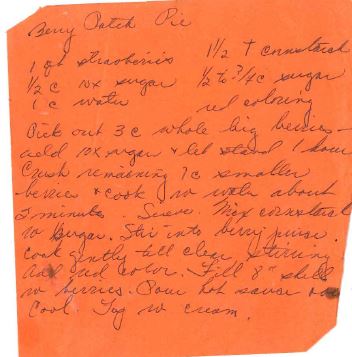 Berry Patch Pie
1 qt strawberries 1 1/2 T cornstarch
1/2 c 10x sugar 1/2 to 3/4 c sugar
1 c water red coloring
Pick out 3 c whole big berries -
add 10x sugar & let stand 1 hour
Crush remaining 1 c smaller
berries & cook w water about
2 minutes. Sieve. Mix cornstarch
w sugar. Stir into berry juice.
Cook gently till clear, stirring
Add red color. Fill 8" shell
w berries. Pour hot sauce over
Cool. Top w cream.